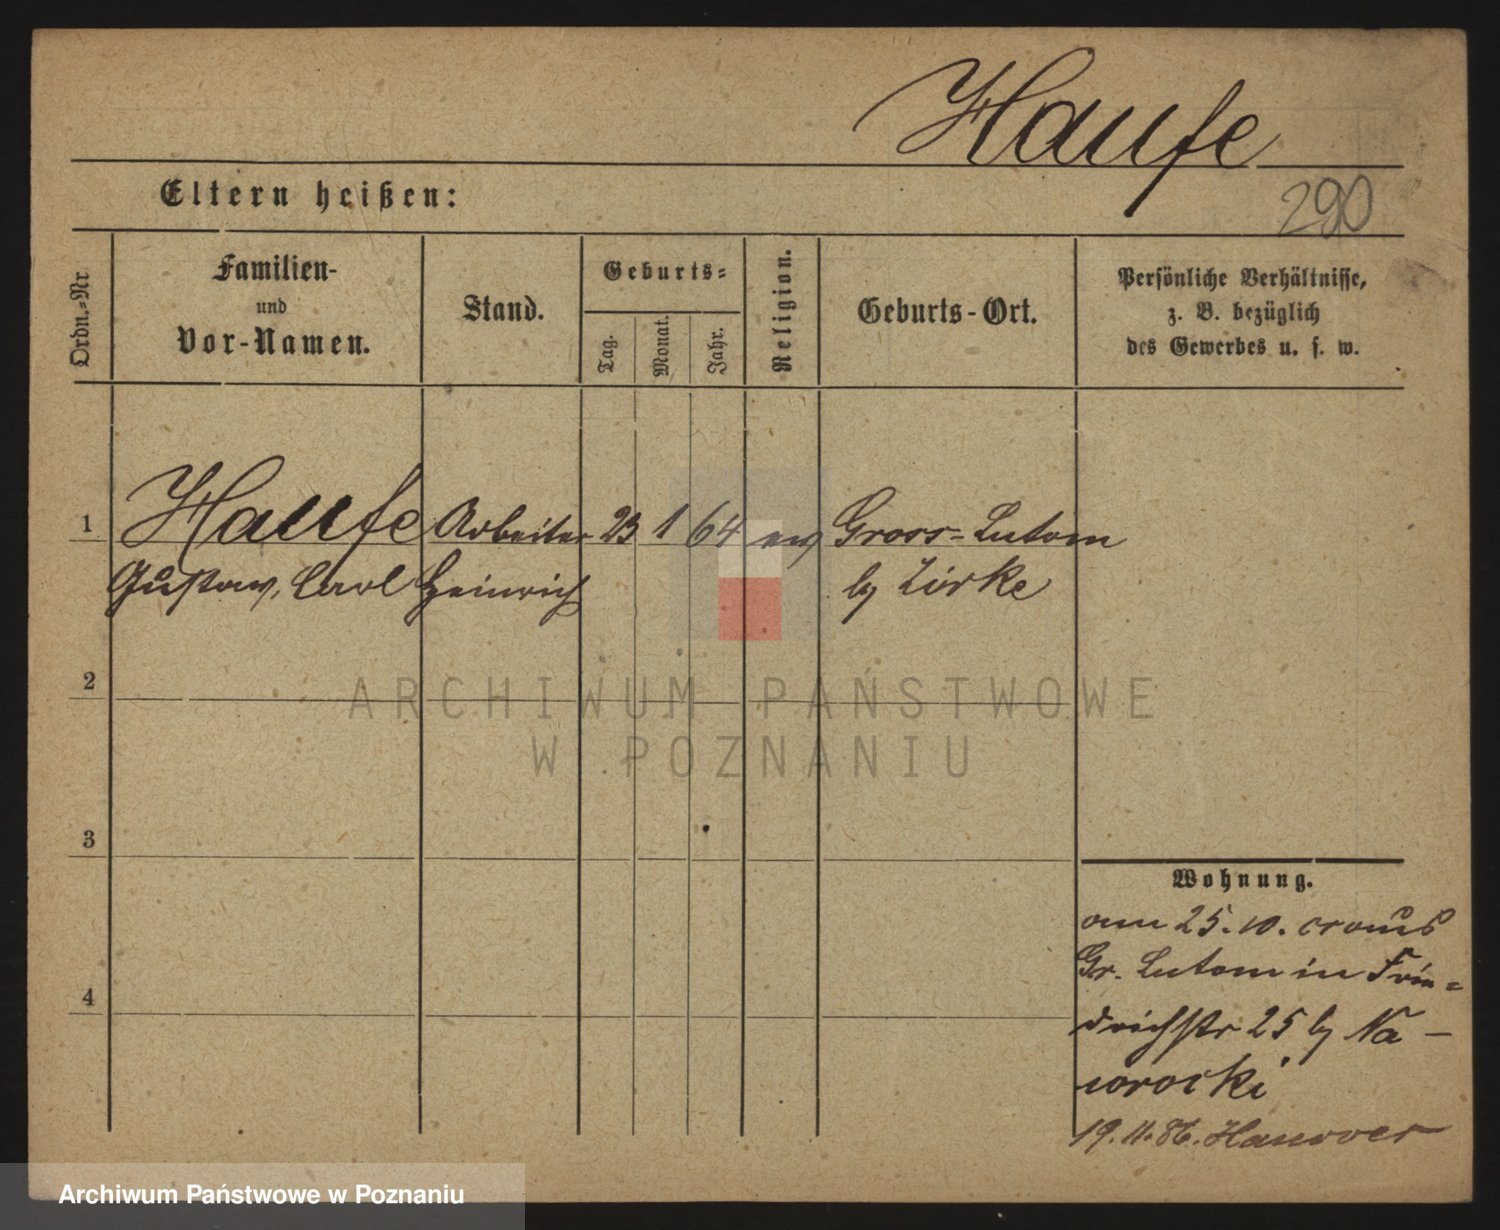 Haufe
Eltern heißen:
290
Ordn.-Nr
Familien-
und
Vor-Namen.
Stand.
Geburts-
Tag.
Monat.
Jahr.
Religion.
Geburts-Ort.
Persönliche Verhältnisse,
z. B. bezüglich
des Gewerbes u. s. w.
1 Haufe Arbeiter 23 1 64 ev Gross-Lutom
Gustav, Carl Heinrich by Zirke
2
ARCHIWUM PAŃSTWOWE
W POZNANIU
3
Wohnung.
am 25. 10. cr aus
Gr. Lutom in Frie-
4
drichstr 25 by Na-
worocki
19. 11. 86. Hanover
Archiwum Państwowe w Poznaniu